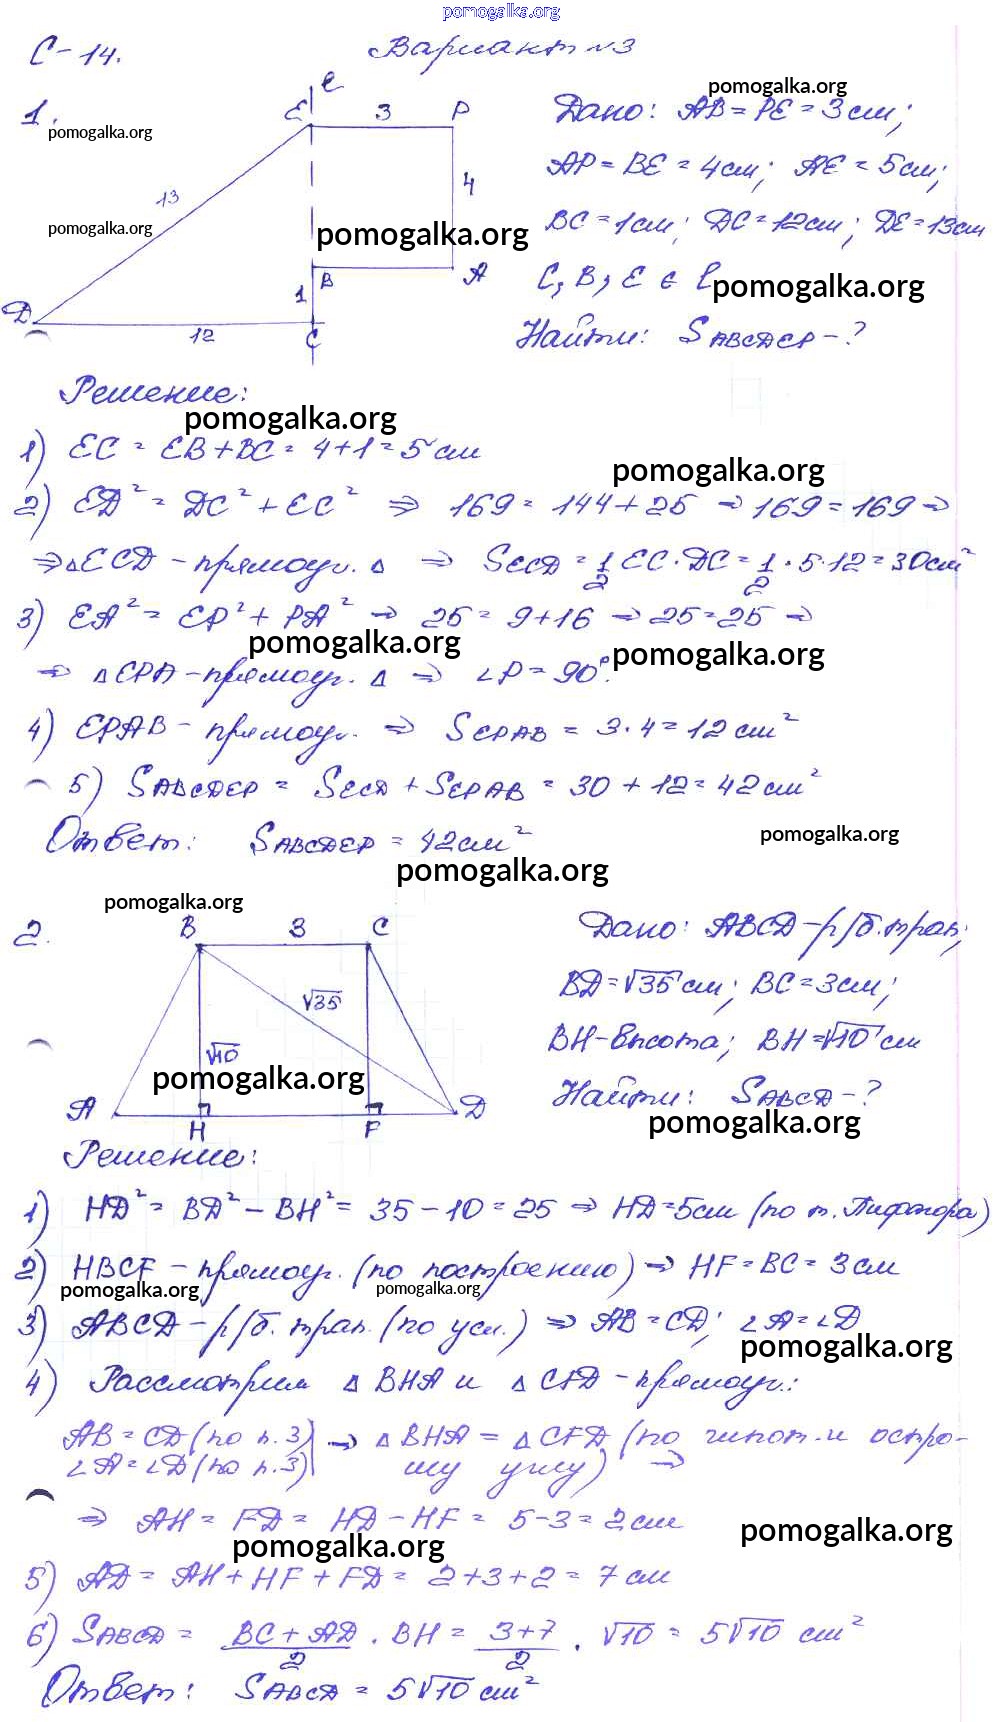 pomogalka.org
С-14. Вариант №3
1.
pomogalka.org
E
l
3
P
13
4
pomogalka.org
pomogalka.org
B
A
1
D
12
C
pomogalka.org
Дано: AB = PE = 3 см;
AP = BE = 4 см; AE = 5 см;
BC = 1 см; DC = 12 см; DE = 13 см
C, B, E ∈ l
pomogalka.org
Найти: S ABCDEP - ?
Решение:
pomogalka.org
1) EC = EB + BC = 4 + 1 = 5 см
pomogalka.org
2) ED² = DC² + EC² ⇒ 169 = 144 + 25 ⇒ 169 = 169 ⇒
⇒ △ECD - прямоуг. △ ⇒ S ECD = 1/2 EC · DC = 1/2 · 5 · 12 = 30 см²
3) EA² = EP² + PA² ⇒ 25 = 9 + 16 ⇒ 25 = 25 ⇒
pomogalka.org
pomogalka.org
⇒ △EPA - прямоуг. △ ⇒ ∠P = 90°.
4) EPAB - прямоуг. ⇒ S EPAB = 3 · 4 = 12 см²
5) S ABCDEP = S ECD + S EPAB = 30 + 12 = 42 см²
Ответ: S ABCDEP = 42 см²
pomogalka.org
pomogalka.org
pomogalka.org
2.
B
3
C
√35
√10
pomogalka.org
A
H
F
D
Дано: ABCD - р/б. трап;
BD = √35 см; BC = 3 см;
BH - высота; BH = √10 см
Найти: S ABCD - ?
pomogalka.org
Решение:
1) HD² = BD² - BH² = 35 - 10 = 25 ⇒ HD = 5 см (по т. Пифагора)
2) HBCF - прямоуг. (по построению) ⇒ HF = BC = 3 см
pomogalka.org
pomogalka.org
3) ABCD - р/б. трап. (по усл.) ⇒ AB = CD; ∠A = ∠D
pomogalka.org
4) Рассмотрим △ BHA и △ CFD - прямоуг.:
AB = CD (по п. 3) ⇒ △ BHA = △ CFD (по гипот. и остро-
∠A = ∠D (по п. 3) му углу) ⇒
⇒ AH = FD = HD - HF = 5 - 3 = 2 см
pomogalka.org
pomogalka.org
5) AD = AH + HF + FD = 2 + 3 + 2 = 7 см
6) S ABCD = (BC + AD)/2 · BH = (3 + 7)/2 · √10 = 5√10 см²
Ответ: S ABCD = 5√10 см²